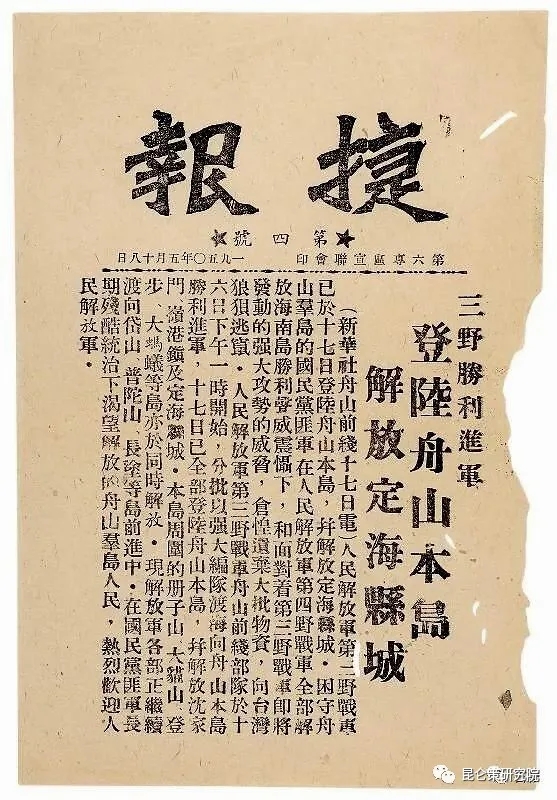 捷報
★第四號★
第六專區宣聯會印 一九五〇年五月十八日
三野勝利進軍
登陸舟山本島
解放定海縣城
（新華社舟山前綫十七日電）人民解放軍第三野戰軍
已於十七日登陸舟山本島，幷解放定海縣城・困守舟
山羣島的國民黨匪軍在人民解放軍第四野戰軍全部解
放海南島勝利聲威震懾下，和面對着第三野戰軍即將
發動的强大攻勢的威脅，倉惶遺棄大批物資，向台灣
狼狽逃竄・人民解放軍第三野戰軍舟山前綫部隊於十
六日下午一時開始，分批以强大編隊渡海向舟山本島
勝利進軍，十七日已全部登陸舟山本島，幷解放沈家
門、嶺港鎭及定海縣城・本島周圍的册子山、大貓山、登
步、大螞蟻等島亦於同時解放・現解放軍各部正繼續
渡向岱山、普陀山、長塗等島前進中・在國民黨匪軍長
期殘酷統治下渴望解放的舟山羣島人民，熱烈歡迎人
民解放軍・
昆仑策研究院